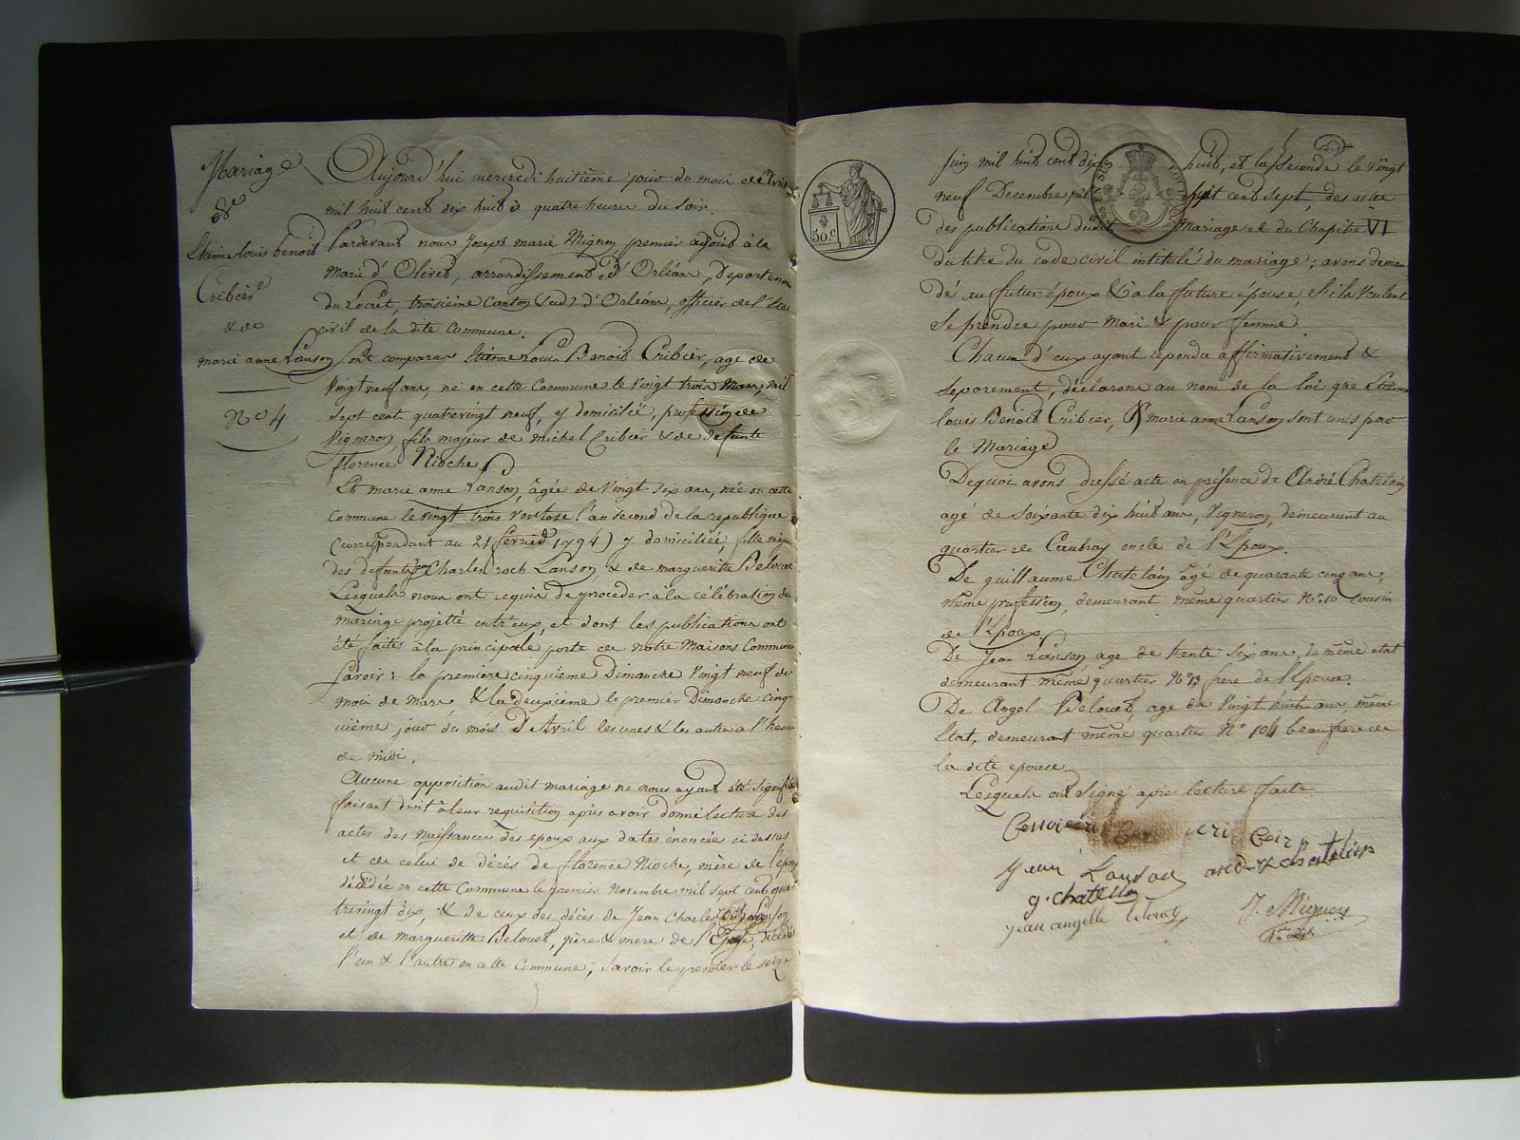 Mariage
de
Etienne Louis benoist
Cribier
& de
marie anne Lanson
N.o 4
Aujourd'hui mercredi huitième jour du mois d'Avril
mil huit cent dix huit à quatre heures du soir.
Pardevant nous Joseph marie Mignon premier adjoint à la
Marie d'Olivet, arrondissement d'Orléans, Departement
du Loiret, troisieme Canton sud d'Orléans, officier de l'Etat
civil de la dite Commune.
Sont comparus Etienne Louis Benoist Cribier, agé de
Vingt neuf ans, né en cette Commune le vingt trois Mars, mil
sept cent quatrevingt neuf, y domicilié, profession de
Vigneron fils majeur de michel Cribier & de defunte
florence Rioche
Et marie anne Lanson âgée de Vingt six ans, née en cette
Commune le vingt trois Ventose l'an second de la republique
(correspondant au 21 février 1794) y domiciliée, fille
des defunts Charles roch Lanson & de marguerite Belouet
Lesquels nous ont requis de proceder à la célébration du
mariage projetté entr'eux, et dont les publications ont
été faites à la principale porte de notre Maisons Commune
savoir: la premiere cinquième Dimanche Vingt neuf du
mois de Mars & la deuxième le premier Dimanche cinq-
uième jour du mois d'Avril les unes & les autres a l'heure
de midi.
Aucune opposition audit mariage ne nous ayant été signifiée
faisant droit à leur requisition après avoir donné lecture des
actes des naissances des epoux aux dates énoncées ci dessus
et de celui de décès de florence Rioche, mère de l'epoux
décédée en cette Commune le premier Novembre mil sept cent qua-
trevingt dix, & de ceux des décès de Jean Charles roch Lanson
et de marguerite Belouet, père & mere de l'Epouse, décédés
l'un & l'autre en cette Commune; savoir le premier le seize
50 c
juin mil huit cent dix huit, et la Seconde le vingt
neuf Decembre mil sept cent sept, des actes
des publications dudit Mariage & du Chapitre VI
du titre du code civil intitulé du mariage; avons deman-
dé au futur époux & a la future épouse, s'ils veulent
se prendre pour Mari & pour femme.
Chacun d'eux ayant repondu affirmativement &
séparement, déclarons au nom de la loi que Etienne
Louis Benoist Cribier, & marie anne Lanson sont unis par
le Mariage
Dequoi avons dressé acte en présence de André Chatelain
agé de soixante dix huit ans, Vigneron, demeurant au
quartier de Caubray oncle de l'Epoux.
De guillaume Chatelain âgé de quarante cinq ans,
même profession, demeurant même quartier N.o 10 cousin
de l'Epoux
De Jean Lanson agé de trente six ans, de même etat
demeurant même quartier N.o 13 frere de l'Epouse.
De Angel Belouet, agé de Vingt huit ans, même
Etat, demeurant même quartier N.o 104 beaufrere de
la dite epouse
Lesquels ont signé après lecture faite
Jean Lanson
andré chatelain
g. chatelain
jean angelle belouet
J. Mignon